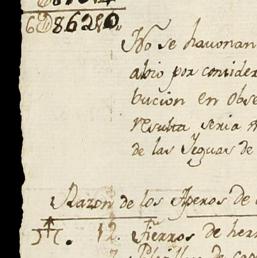 6D8620„
No se havonan
alvio por consider
bucion en obse
resulta seria m
de las Yeguas de
Razon de los Aperos de
12. Fierros de herr